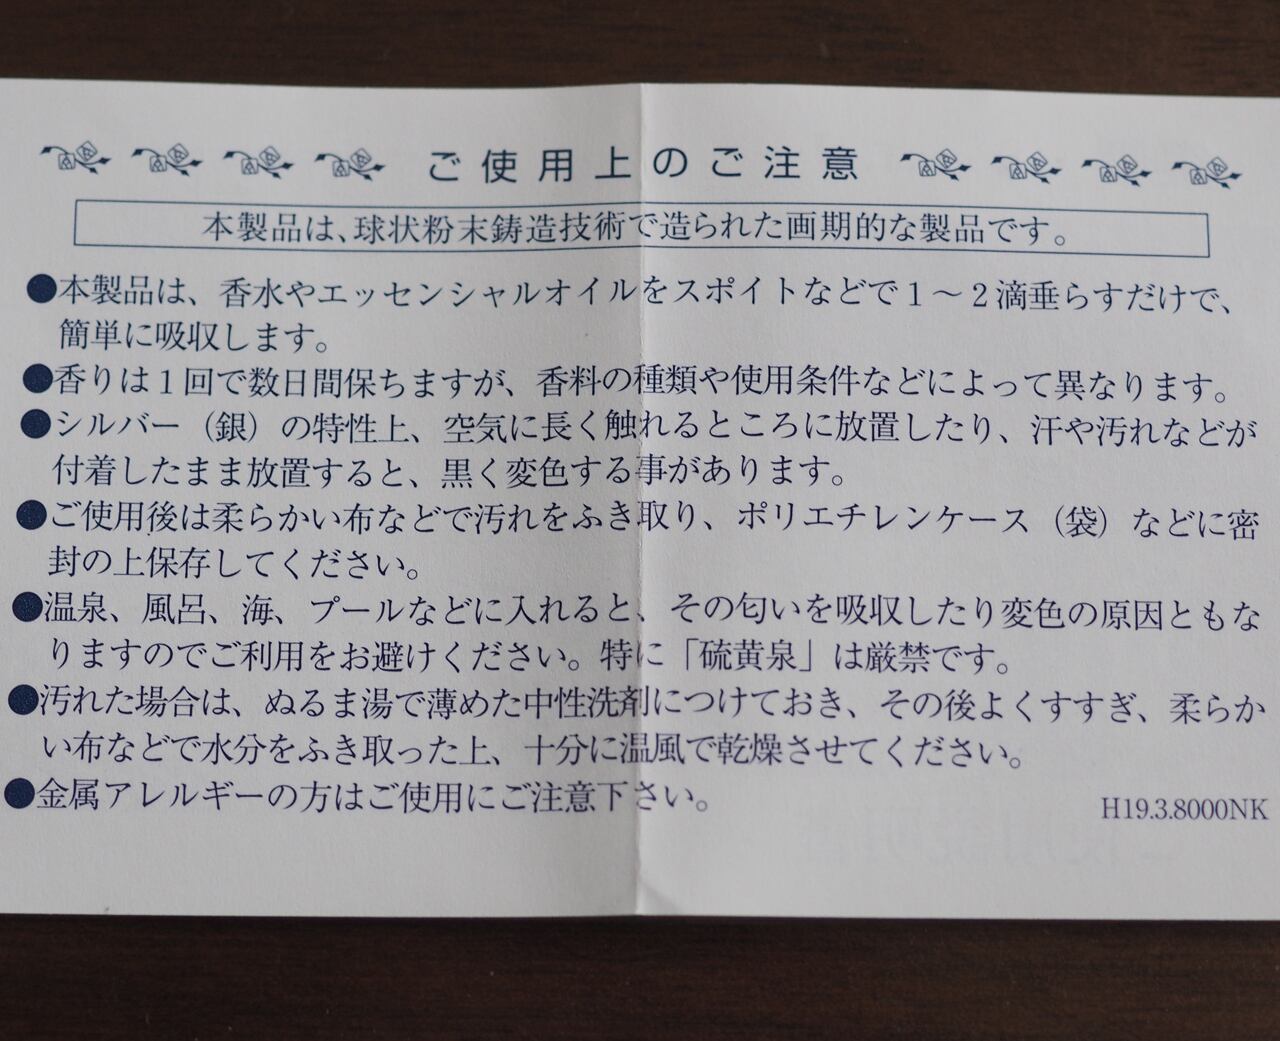 ご使用上のご注意
本製品は、球状粉末鋳造技術で造られた画期的な製品です。
●本製品は、香水やエッセンシャルオイルをスポイトなどで１～２滴垂らすだけで、
簡単に吸収します。
●香りは１回で数日間保ちますが、香料の種類や使用条件などによって異なります。
●シルバー（銀）の特性上、空気に長く触れるところに放置したり、汗や汚れなどが
付着したまま放置すると、黒く変色する事があります。
●ご使用後は柔らかい布などで汚れをふき取り、ポリエチレンケース（袋）などに密
封の上保存してください。
●温泉、風呂、海、プールなどに入れると、その匂いを吸収したり変色の原因ともな
りますのでご利用をお避けください。特に「硫黄泉」は厳禁です。
●汚れた場合は、ぬるま湯で薄めた中性洗剤につけておき、その後よくすすぎ、柔らか
い布などで水分をふき取った上、十分に温風で乾燥させてください。
●金属アレルギーの方はご使用にご注意下さい。
H19.3.8000NK